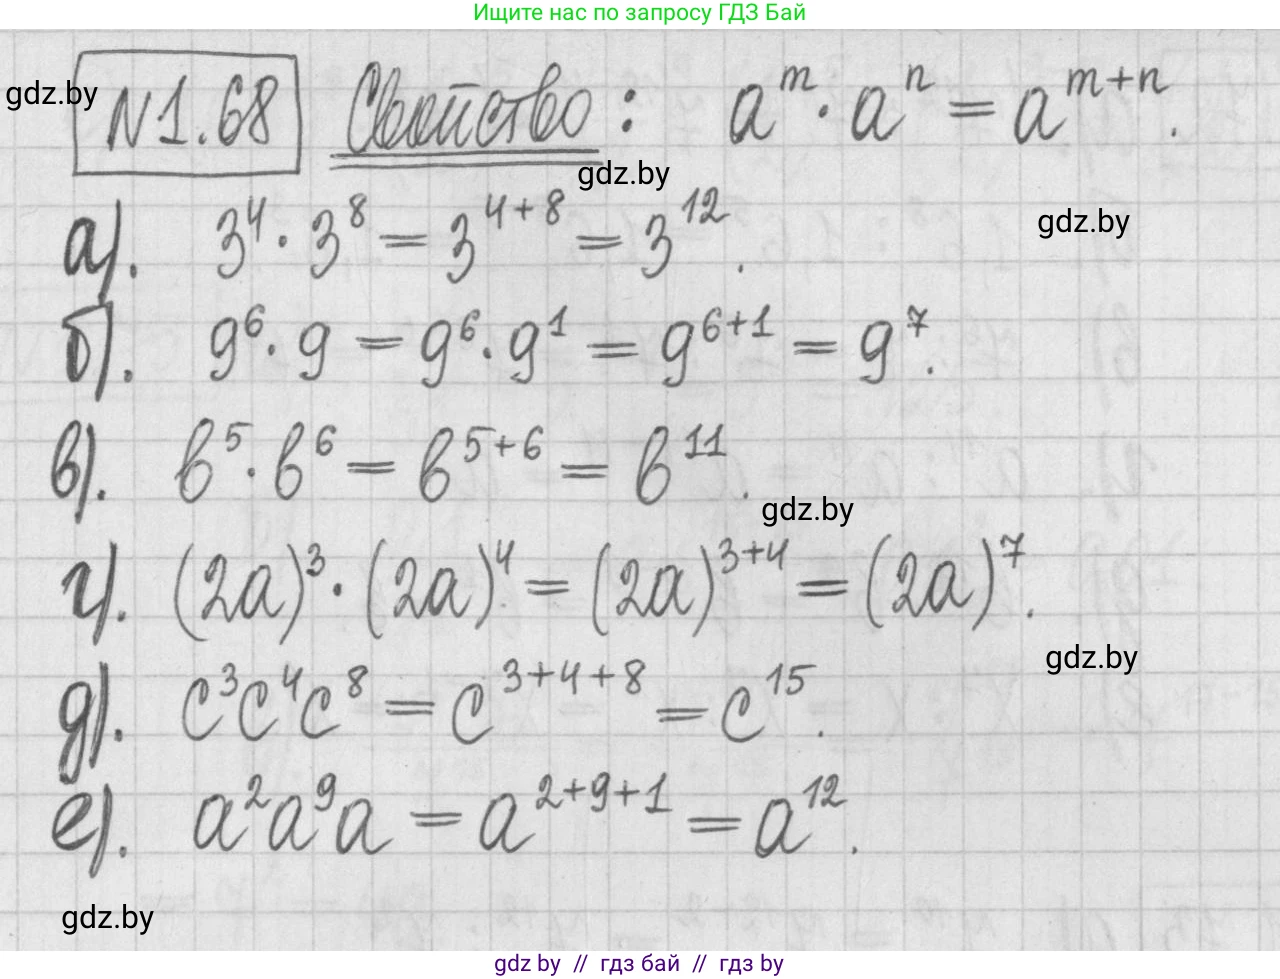 Ищите нас по запросу ГДЗ Бай
gdz.by
N1.68 Свойство: a^m · a^n = a^{m+n}.
gdz.by
gdz.by
а). 3^4 · 3^8 = 3^{4+8} = 3^{12}.
б). 9^6 · 9 = 9^6 · 9^1 = 9^{6+1} = 9^7.
в). b^5 · b^6 = b^{5+6} = b^{11}.
gdz.by
г). (2a)^3 · (2a)^4 = (2a)^{3+4} = (2a)^7.
gdz.by
д). c^3 c^4 c^8 = c^{3+4+8} = c^{15}.
е). a^2 a^9 a = a^{2+9+1} = a^{12}.
gdz.by
gdz by // гдз бай // гдз by